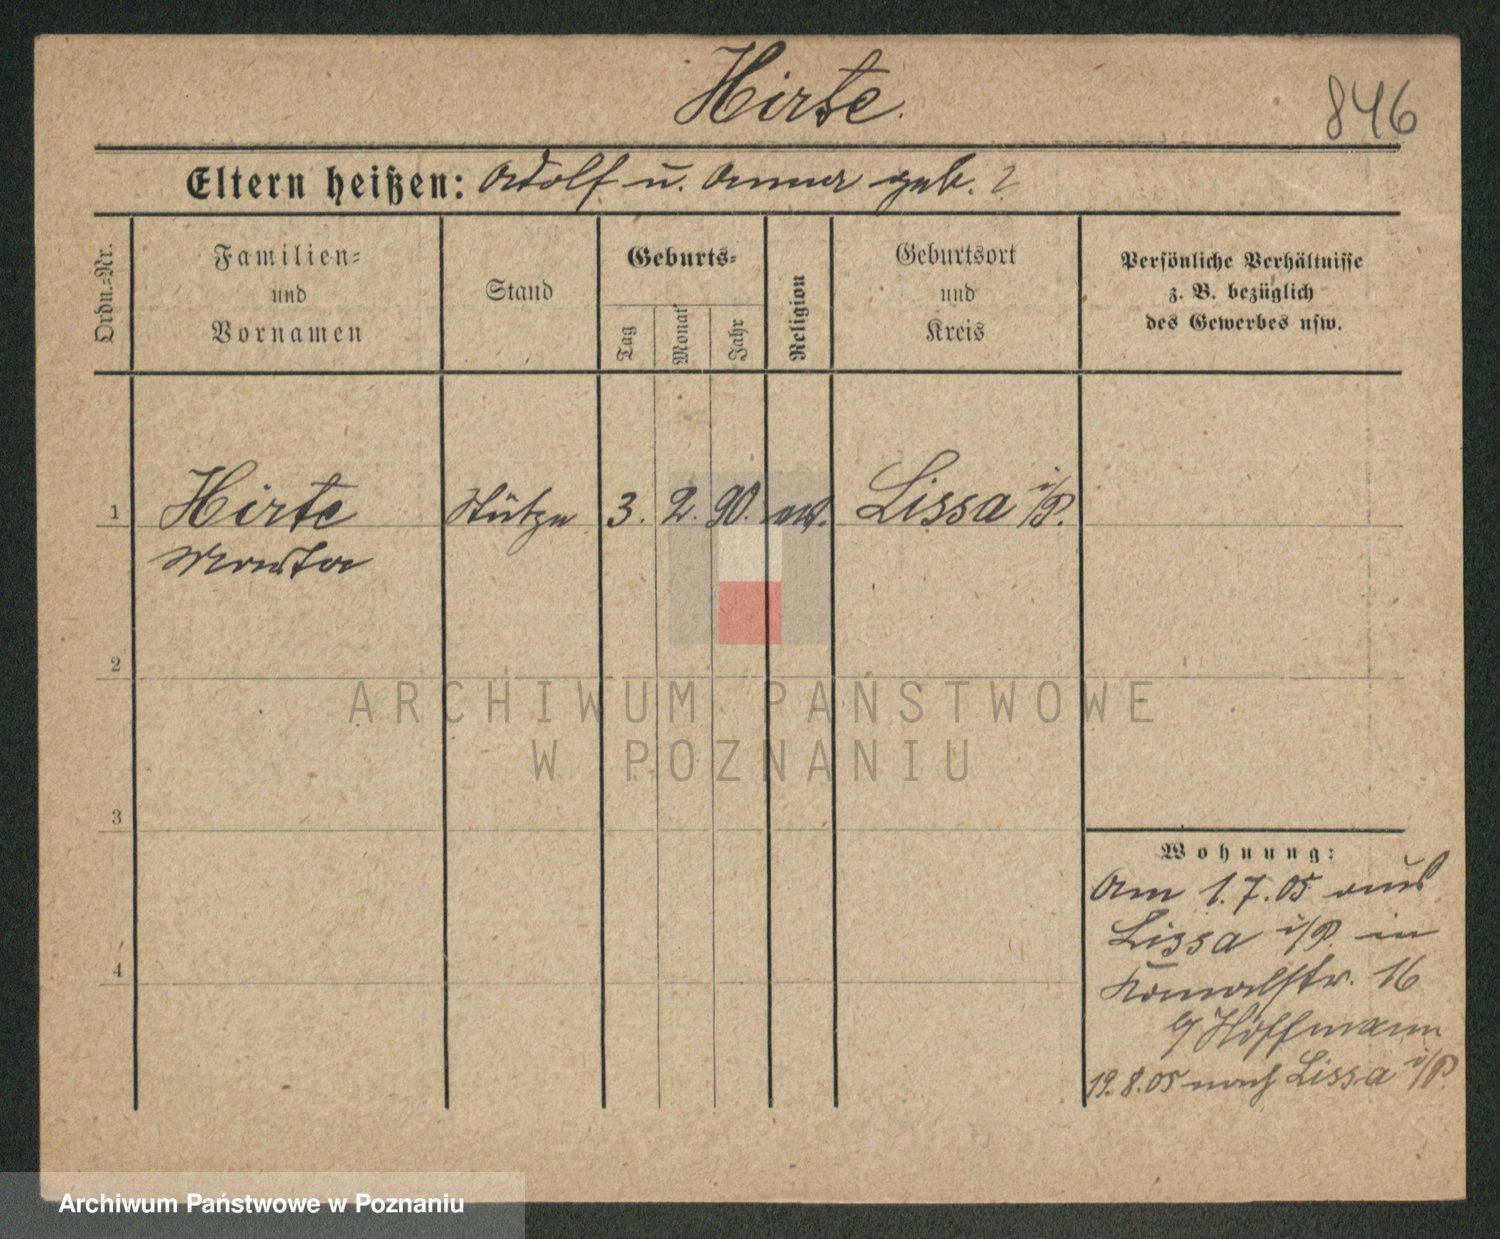 Hirte.
846
Eltern heißen: Adolf u. Anna geb. ?
Ordn.-Nr.
Familien-
und
Vornamen
Stand
Geburts-
Tag
Monat
Jahr
Religion
Geburtsort
und
Kreis
Persönliche Verhältnisse
z. B. bezüglich
des Gewerbes usw.
1 Hirte Stütze 3. 2. 90. ev. Lissa i/P.
Martha
2
3
4
Wohnung:
Am 1.7.05 aus
Lissa i/P. in
Kanalstr. 16
b/ Hoffmann
19.8.05 nach Lissa i/P.
ARCHIWUM PAŃSTWOWE
W POZNANIU
Archiwum Państwowe w Poznaniu